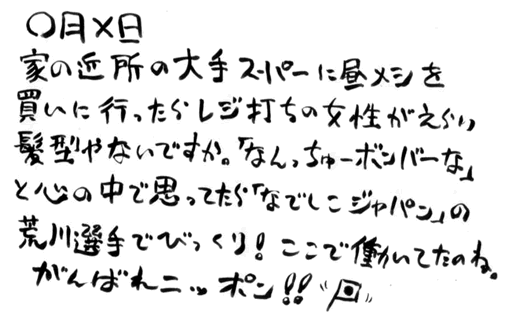 〇月×日
家の近所の大手スーパーに昼メシを
買いに行ったらレジ打ちの女性がえらい
髪型やないですか。「なんっちゅーボンバーな」
と心の中で思ってたら「なでしこジャパン」の
荒川選手でびっくり！ここで働いてたのね。
がんばれニッポン!!